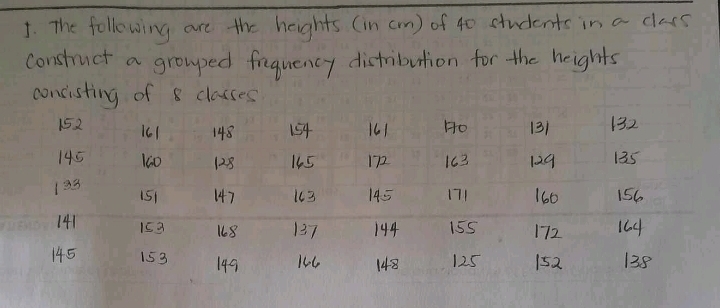 1. The following are the heights (in cm) of 40 students in a class
Construct a grouped frequency distribution for the heights
consisting of 8 classes.
152 161 148 154 161 170 131 132
145 160 128 165 172 163 129 135
133 151 147 163 145 171 160 156
141 153 168 137 144 155 172 164
145 153 149 166 148 125 152 138